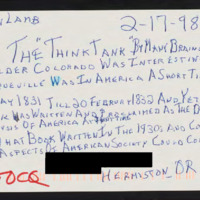 2-17-98
THE "THINK TANK" BY MANY BRAINI
LDER COLORADO WAS INTERESTIN
QUEVILLE WAS IN AMERICA A SHORT TI
AY 1831 TILL 20 FEBRUARY 1832 AND YET
K WAS WRITTEN AND PROCLAIMED AS THE D
YSIS OF AMERICA
THAT BOOK WRITTEN IN THE 1930S AND CO
ASPECTS OF AMERICAN SOCIETY COULD CO
HERMISTON OR